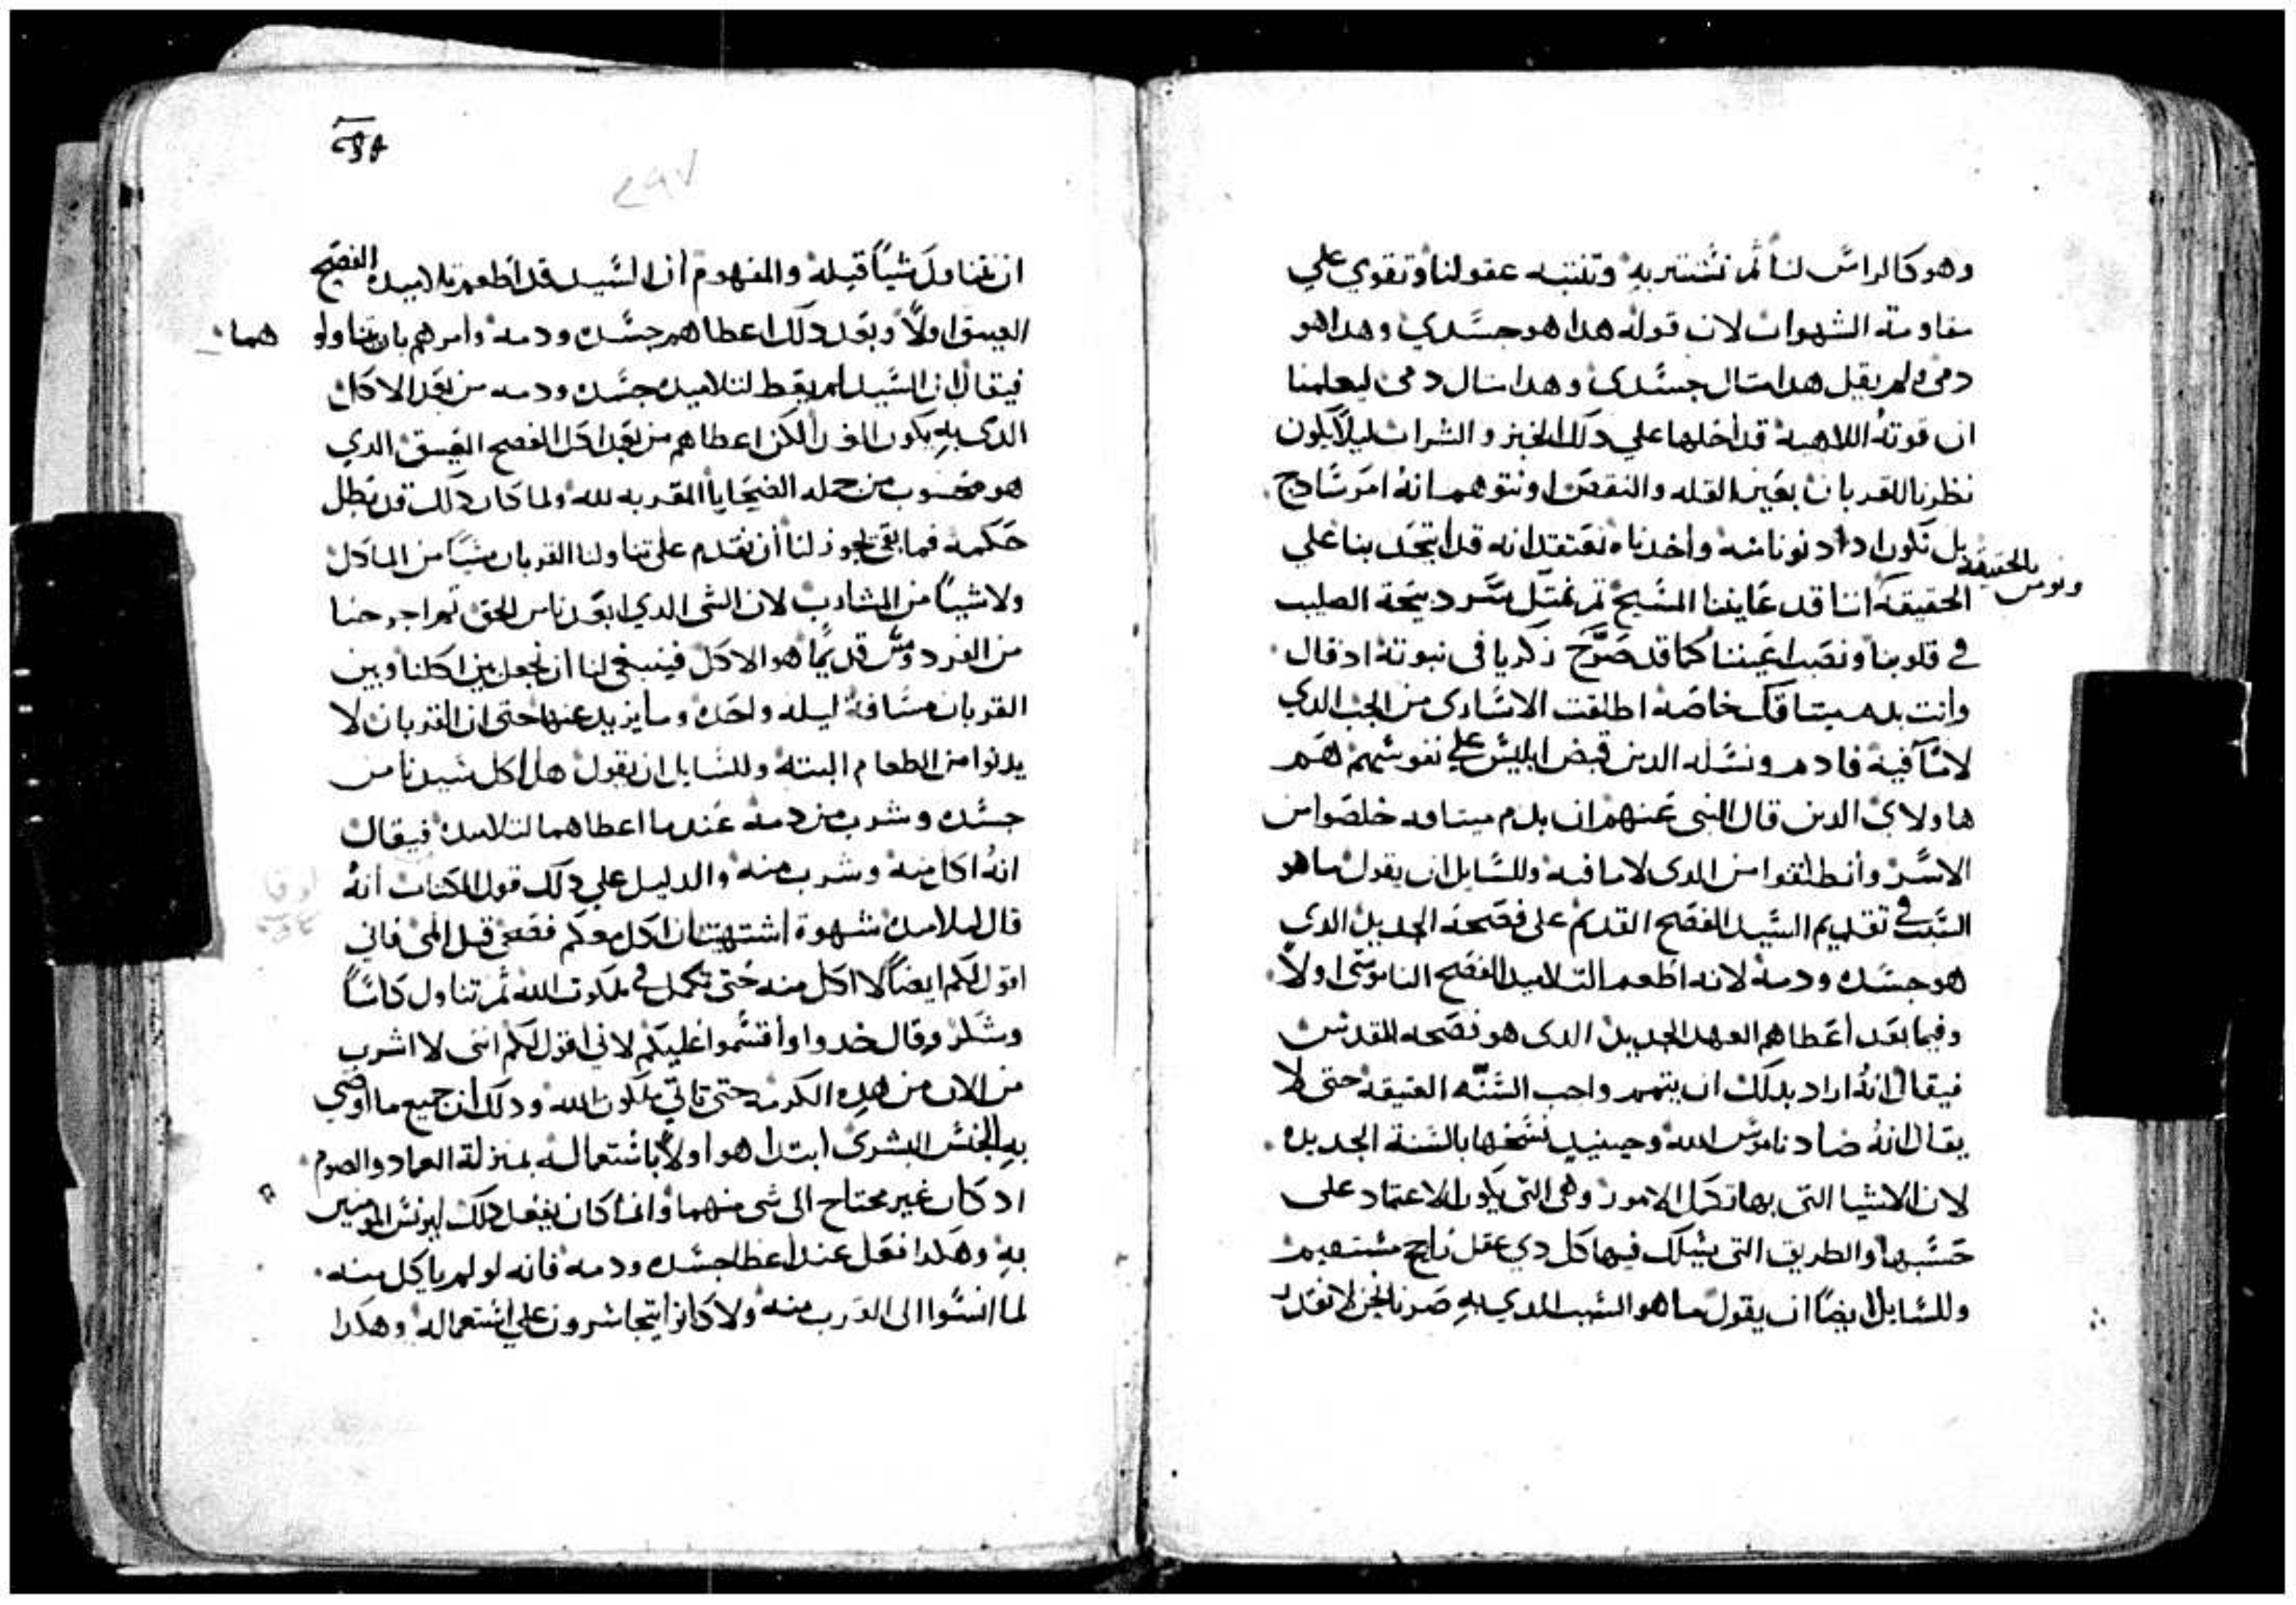 وهو كالراس لنا ثم نشتتر به وتنتبه عقولنا وتقوي علي
مقاومة الشهوات لان قوله هدا هو جسدي وهدا هو
دمي ولم يقل هدا مثال جسدي وهدا مثال دمي ليعلمنا
ان قوته اللاهية قد احلها علي دلك الخبز والشراب ليلا يكون
نظرنا للقربان بعين القله والنقص او نتوهم انه امر سادج
بل نكون ادا دنونا منه واخدناه نعتقد انه قد اتحد بنا علي
ونومن بالحقيقة
الحقيقه اننا قد عاينا المسيح ثم نمتل سر دبيحة الصليب
في قلوبنا ونصب اعيننا كما قد صرح زكريا في نبوته اد قال
وانت بدم ميتاقك خاصه اطلقت الاسارى من الجب الدي
لا ما فيه فادم ونسله الدين قبض ابليس علي نفوسهم هم
هاولاي الدين قال النبي عنهم ان بدم ميتاقه خلصوا من
الاسر وانطلقوا من الدى لا ما فيه وللسايل ان يقول ما هو
السبب في تقديم السيد الفصح القديم على فصحه الجديد الدى
هو جسده ودمه لانه اطعم التلاميد الفصح الناموسى اولا
وفيما بعد اعطاهم العهد الجديد الدى هو فصحه المقدس
فيقال انه اراد بدلك ان يتمم واجب السنه العتيقه حتى لا
يقال انه ضاد ناموس الله وحينيد نسخها بالسنة الجديده
لان الاشيا التى بها تكمل الامور وهى التى يكون الاعتماد على
حسبها والطريق التى يسلك فيها كل دي عقل راجح مستقيم
وللسايل ايضا ان يقول ما هو السبب الدي به صرنا نحن لا نقدر
٢٩٧
ان نتناول شيا قبله والمفهوم ان السيد قد اطعم تلاميده الفصح
العتيق اولا وبعد دلك اعطاهم جسده ودمه وامرهم بان يتناولو هما
فيقال ان السيد لم يعط لتلاميده جسده ودمه من بعد الاكل
الدى به يكون لكن اعطاهم من بعد اكل الفصح العتيق الدي
هو محسوب من جمله الضحايا المقربه لله ولما كان دلك قد بطل
حكمه فما بقى يجوز لنا ان نقدم على تناولنا القربان شيا من الماكل
ولا شيا من المشارب لان الشى الدي ابعدنا من الحق ثم اخرجنا
من الفردوس قديما هو الاكل فينبغي لنا ان نجعل بين اكلنا وبين
القربان مسافة ليله واحده وما يزيد عنها حتى ان القربان لا
يدنوا من الطعام البته وللسايل ان يقول هل اكل سيدنا من
جسده وشرب من دمه عندما اعطاهما لتلاميده فيقال
انه اكل منه وشرب منه والدليل علي دلك قول الكتاب انه
لوقا
قال لتلاميده شهوة اشتهيت ان اكل معكم فصحى قبل المى فاني
اقول لكم ايضا لا اكل منه حتى تكمل في ملكوت الله ثم تناول كاسا
وشكر وقال خدوا واقسموا عليكم لاني اقول لكم انني لا اشرب
من الان من هده الكرمه حتى تاتي ملكوت الله ودلك ان جميع ما اوصي
به الجنس البشرى ابتدا هو اولا باستعماله بمنزلة العماد والصوم
اد كان غير محتاج الى شى منهما وانما كان يفعل دلك ليونس المومنين
به وهكدا فعل عند اعطا جسده ودمه فانه لو لم ياكل منه
لما انسوا الى القرب منه ولا كانوا يتجاسرون على استعماله وهكدا